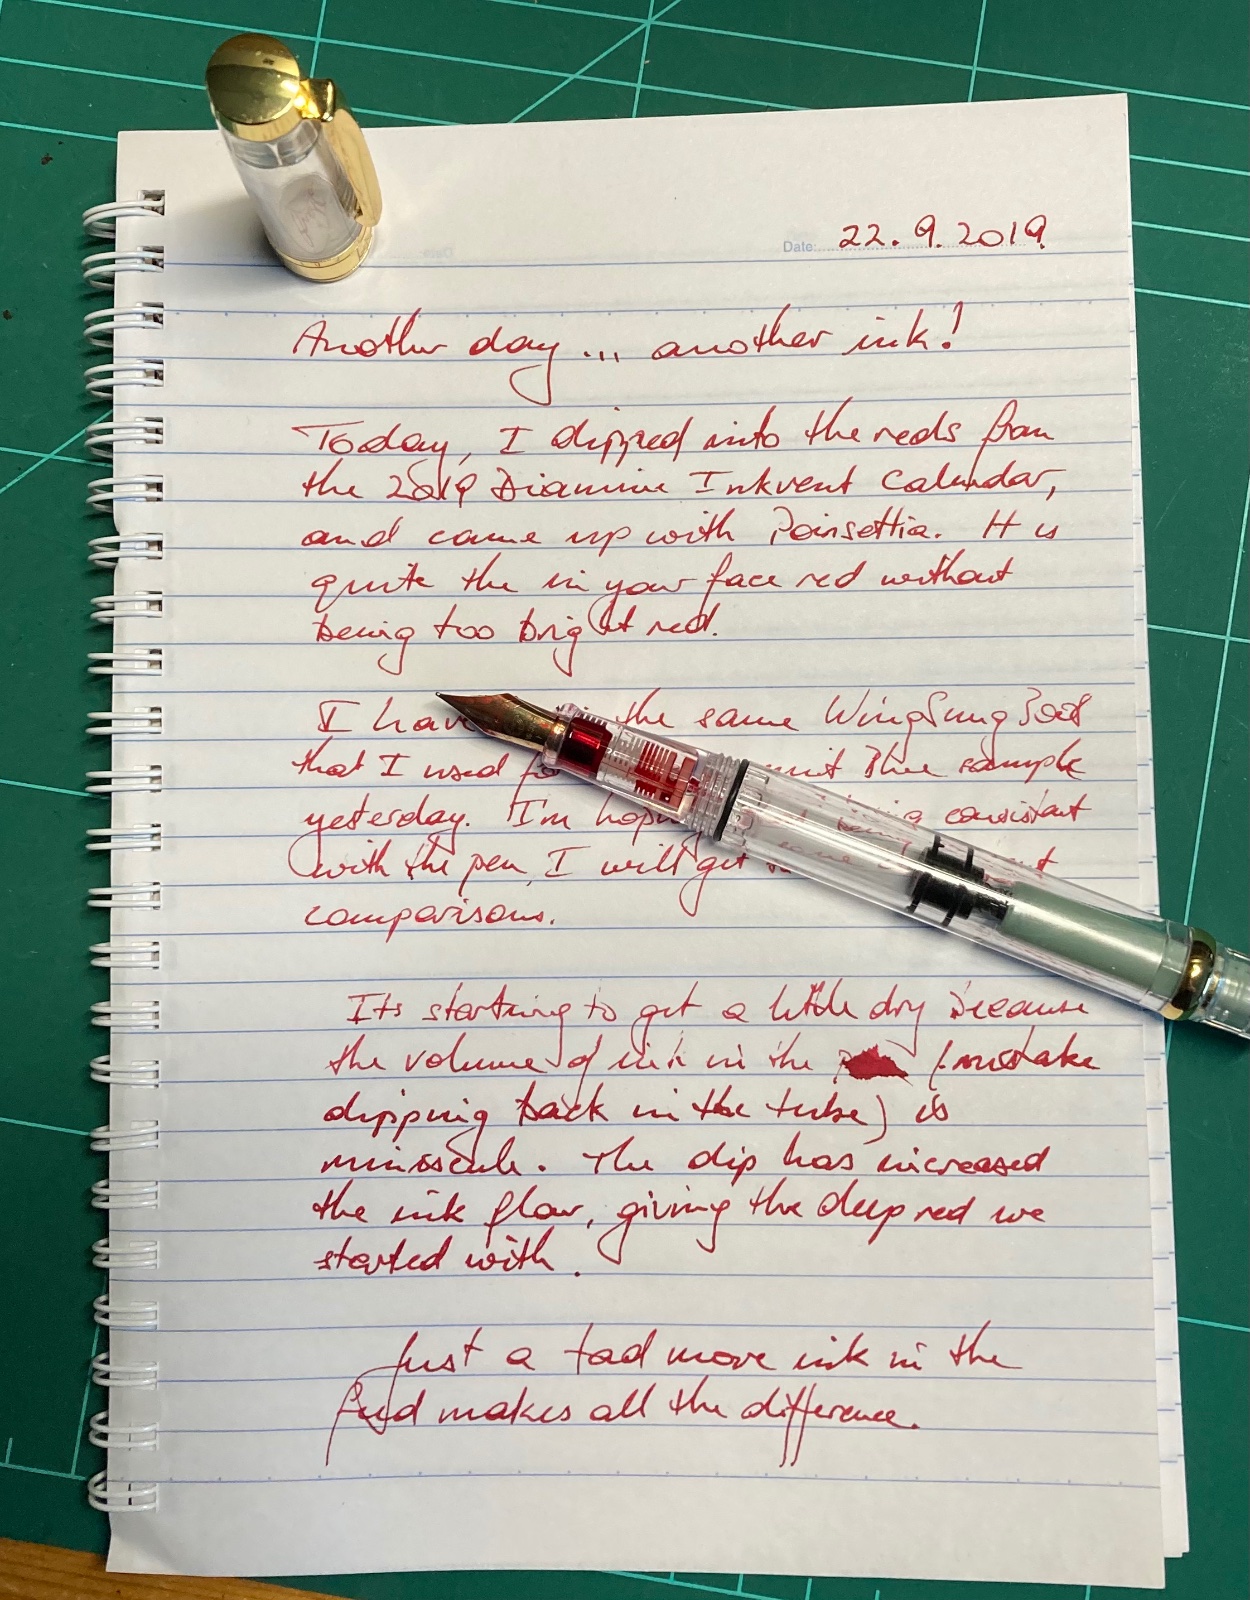 Date: 22.9.2019
Another day ... another ink!
Today, I dipped into the reds from
the 2019 Diamine Inkvent Calendar,
and came up with Poinsettia. It is
quite the in your face red without
being too bright red.
I have the same WingSung
that I used Blue sample
yesterday. I'm consistant
with the pen, I will get
comparisons.
Its starting to get a little dry because
the volume of ink in the (mistake
dipping back in the tube) is
miniscule. The dip has increased
the ink flow, giving the deep red we
started with.
Just a tad more ink in the
feed makes all the difference.